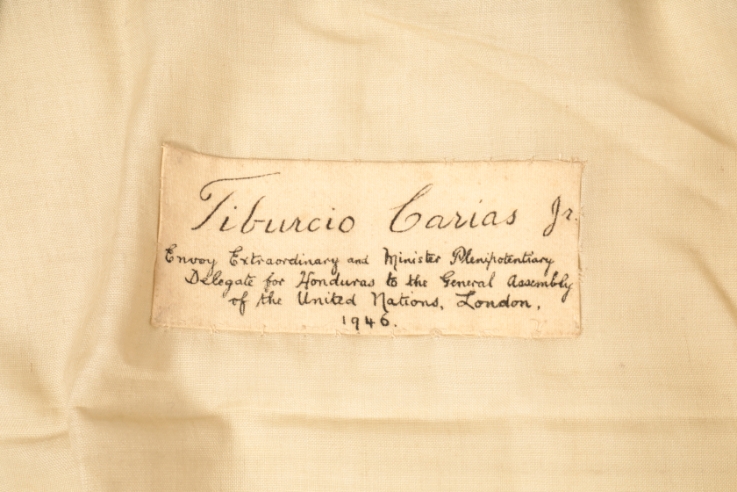 Tiburcio Carias Jr.
Envoy Extraordinary and Minister Plenipotentiary
Delegate for Honduras to the General Assembly
of the United Nations, London,
1946.